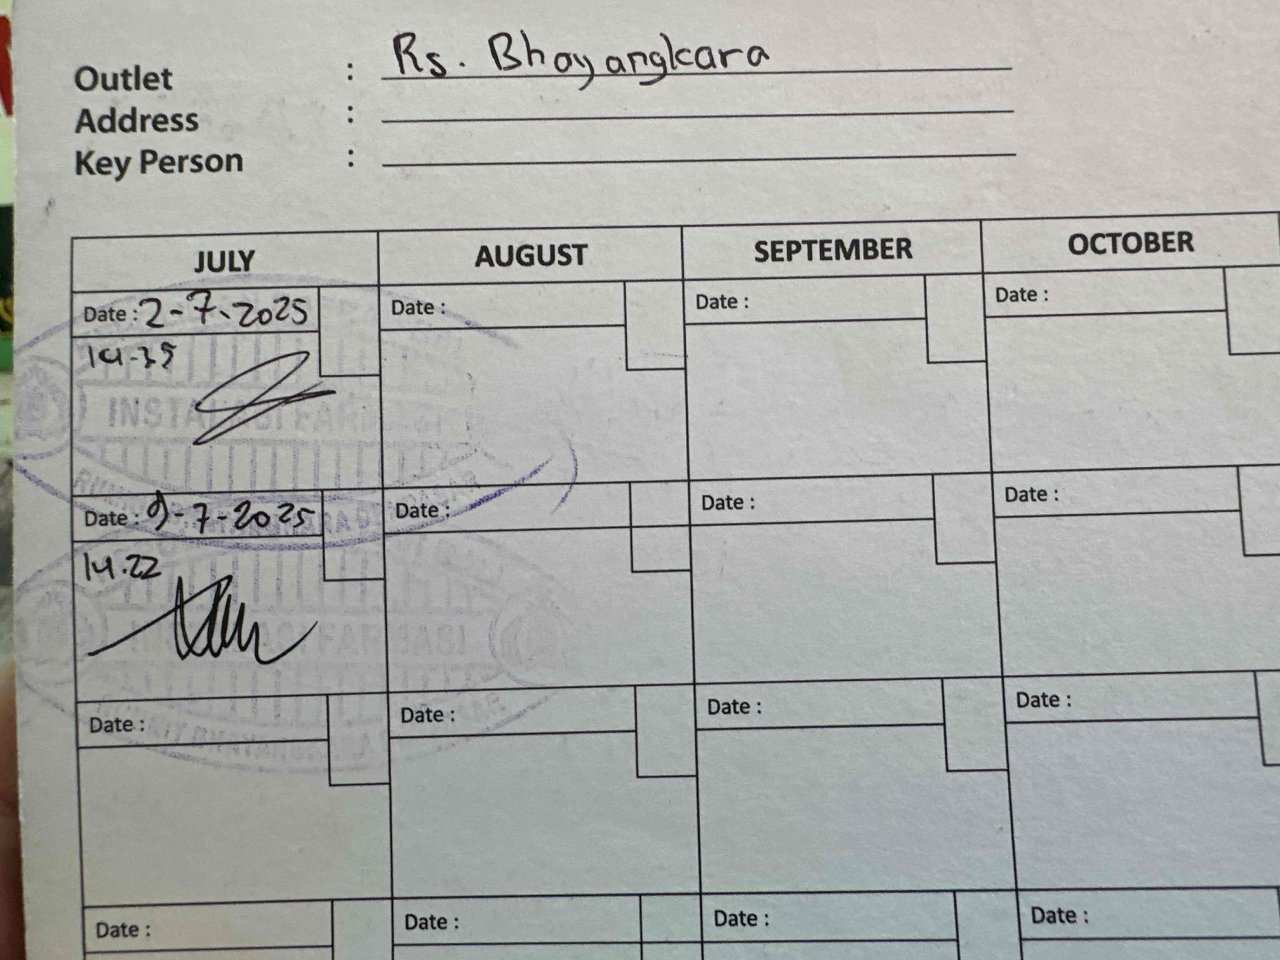 Outlet : Rs. Bhayangkara
Address :
Key Person :
JULY AUGUST SEPTEMBER OCTOBER
Date : 2-7-2025 Date : Date : Date :
14-35
INSTALASI FARMASI
Date : 9-7-2025 Date : Date : Date :
14.22
INSTALASI FARMASI
Date : Date : Date : Date :
BHAYANGKARA
Date : Date : Date : Date :